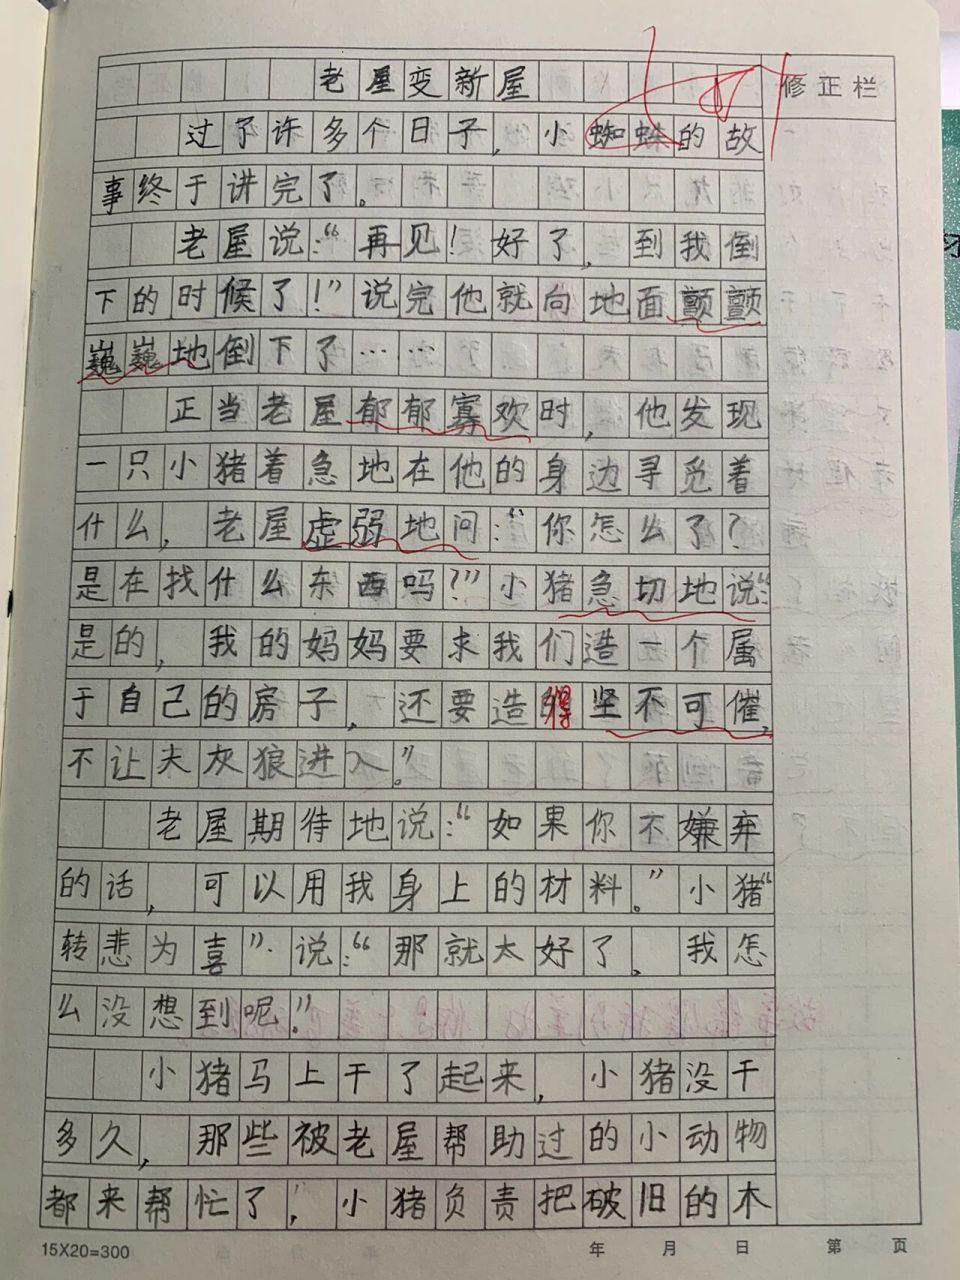 老屋变新屋
修正栏
过了许多个日子，小蜘蛛的故
事终于讲完了。
老屋说：“再见！好了，到我倒
下的时候了！”说完他就向地面颤颤
巍巍地倒下了……
正当老屋郁郁寡欢时，他发现
一只小猪着急地在他的身边寻觅着
什么，老屋虚弱地问：“你怎么了？
是在找什么东西吗？”小猪急切地说：“
是的，我的妈妈要求我们造一个属
于自己的房子，还要造得坚不可催，
不让大灰狼进入。”
老屋期待地说：“如果你不嫌弃
的话，可以用我身上的材料。”小猪“
转悲为喜”说：“那就太好了，我怎
么没想到呢。”
小猪马上干了起来，小猪没干
多久，那些被老屋帮助过的小动物
都来帮忙了，小猪负责把破旧的木
15X20=300
年 月 日 第 页